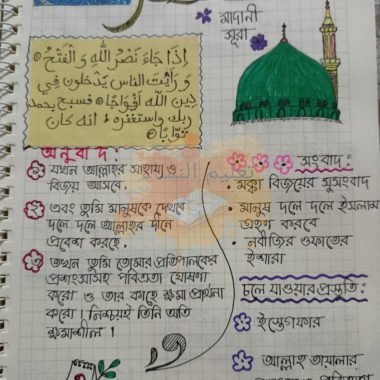 মাদানী
সূরা
إِذَا جَاءَ نَصْرُ اللّٰهِ وَ الْفَتْحُ
وَ رَأَيْتَ النَّاسَ يَدْخُلُونَ فِي
دِينِ اللّٰهِ أَفْوَاجًا فسبح بحمد
ربك واستغفره انه كان
توابًا
অনুবাদ :
১ যখন আল্লাহর সাহায্য ও
বিজয় আসবে.
২ এবং তুমি মানুষকে দেখবে
দলে দলে আল্লাহর দ্বীনে
প্রবেশ করছে.
৩ তখন তুমি তোমার প্রতিপালকের
প্রশংসাসহ পবিত্রতা ঘোষণা
করো ও তার কাছে ক্ষমা প্রার্থনা
করো ! নিশ্চয়ই তিনি অতি
ক্ষমাশীল !
সংবাদ :
মক্কা বিজয়ের সুসংবাদ
মানুষ দলে দলে ইসলাম
গ্রহণ করবে
নবীজির ওফাতের
ইশারা
চলে যাওয়ার প্রস্তুতি :
ইস্তেগফার
আল্লাহ তায়ালার